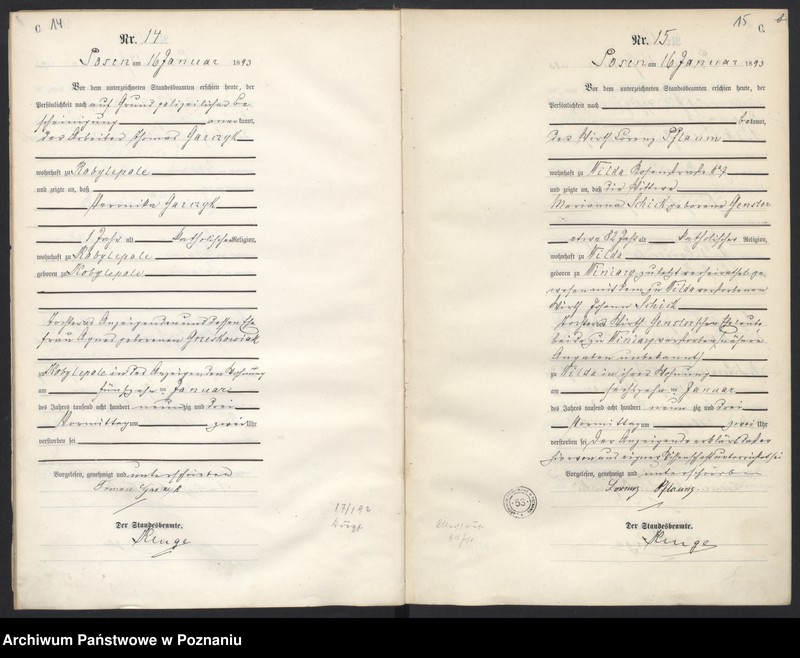 C 14
Nr. 14
Posen am 16 Januar 1893
Vor dem unterzeichneten Standesbeamten erschien heute, der
Persönlichkeit nach auf Grund polizeilicher Be-
scheinigung anerkannt,
der Arbeiter Thomas Garczyk
wohnhaft zu Kobylepole
und zeigte an, daß
Veronika Garczyk
1 Jahr alt katholischer Religion,
wohnhaft zu Kobylepole
geboren zu Kobylepole
Tochter des Anzeigenden und dessen Ehe-
frau Agnes geborenen
zu Kobylepole in des Anzeigenden Wohnung
am fünfzehn ten Januar
des Jahres tausend acht hundert neun zig und drei
Vormittag um zwei Uhr
verstorben sei
Vorgelesen, genehmigt und unterschrieben
Garczyk
Der Standesbeamte.
17/192
15
C.
Nr. 15
Posen am 16 Januar 1893
Vor dem unterzeichneten Standesbeamten erschien heute, der
Persönlichkeit nach
bekannt,
der Wirth Lorenz Pflaum
wohnhaft zu Wilda
und zeigte an, daß die Wittwe
Marianna Schick geborene Gensler
etwa 82 Jahr alt katholischer Religion,
wohnhaft zu Wilda
geboren zu Winiary zuletzt verheirathet ge-
wesen mit dem zu Wilda verstorbenen
Wirth Johann Schick
Tochter der Wirth Genslerschen Eheleute
beide zu Winiary verstorben (nähere
Angaben unbekannt)
zu Wilda in ihrer Wohnung
am sechszehn ten Januar
des Jahres tausend acht hundert neun zig und drei
Vormittag um zwei Uhr
verstorben sei. Der Anzeigende erklärt daß er
hiervon aus eigner Wissenschaft unterrichtet sei
Vorgelesen, genehmigt und unterschrieben
Lorenz Pflaum
Der Standesbeamte.
53
Archiwum Państwowe w Poznaniu